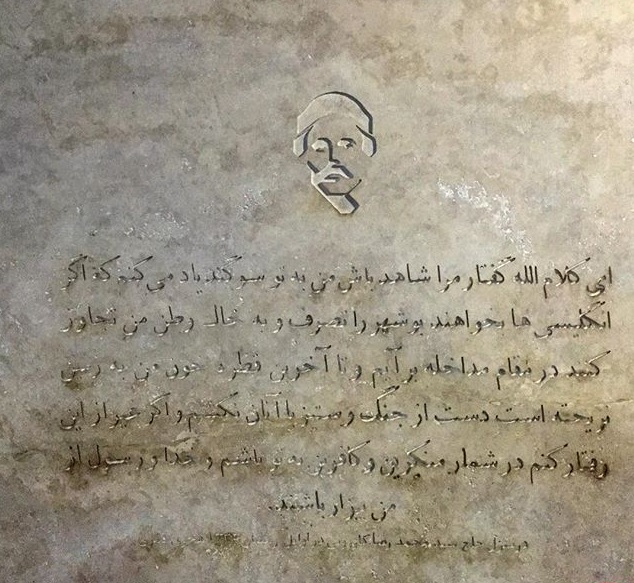 ای کلام الله گفتار مرا شاهد باش من به تو سوگند یاد می‌کنم که اگر
انگلیسی ها بخواهند بوشهر را تصرف و به خاک وطن من تجاوز
کنند در مقام مدافعه بر آیم و تا آخرین قطره خون من به زمین
نریخته است دست از جنگ و ستیز با آنان نکشم و اگر غیر از این
رفتار کنم در شمار منکرین و کافرین به تو باشم و خدا و رسول از
من بیزار باشند..
در منزل حاج سید محمد رضا کازرونی در اوایل